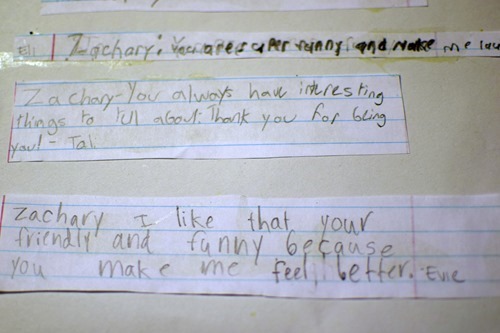 Eli Zachary: You are super funny and make me lau
Zachary-You always have interesting
things to tell about. Thank you for being
you! - Tali
Zachary I like that your
friendly and funny because
you make me feel better. Evie